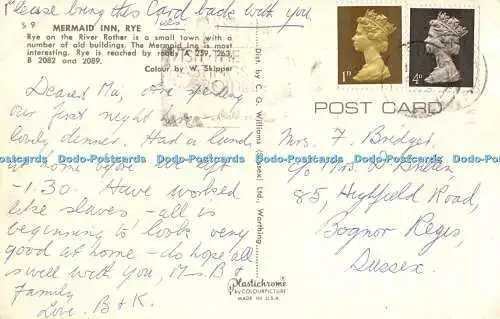 Please bring this Card back with you
yes.
S 9
MERMAID INN, RYE
Rye on the River Rother is a small town with a
number of old buildings. The Mermaid Inn is most
interesting. Rye is reached by roads A 259, 263,
B 2082 and 2089.
Colour by W. Skipper
Dearest Ma, are spending
our first night here
lovely dinner. Had a
at home before we left
-1.30. Have worked
like slaves - all is
beginning to look very
good at home - do hope all
is well with you, Mrs. B &
Family
Love. B & K.
Dist. by C. G. Williams (Sussex) Ltd., Worthing.
Plastichrome
by COLOURPICTURE
MADE IN U.S.A.
1D
4D
POST CARD
Mrs. F. Bridger,
c/o Mrs.
85, Highfield Road,
Bognor Regis,
Sussex.
Dodo-Postcards Dodo-Postcards Dodo-Postcards Dodo-Postcards Dodo-Postcards Dodo-Postcards